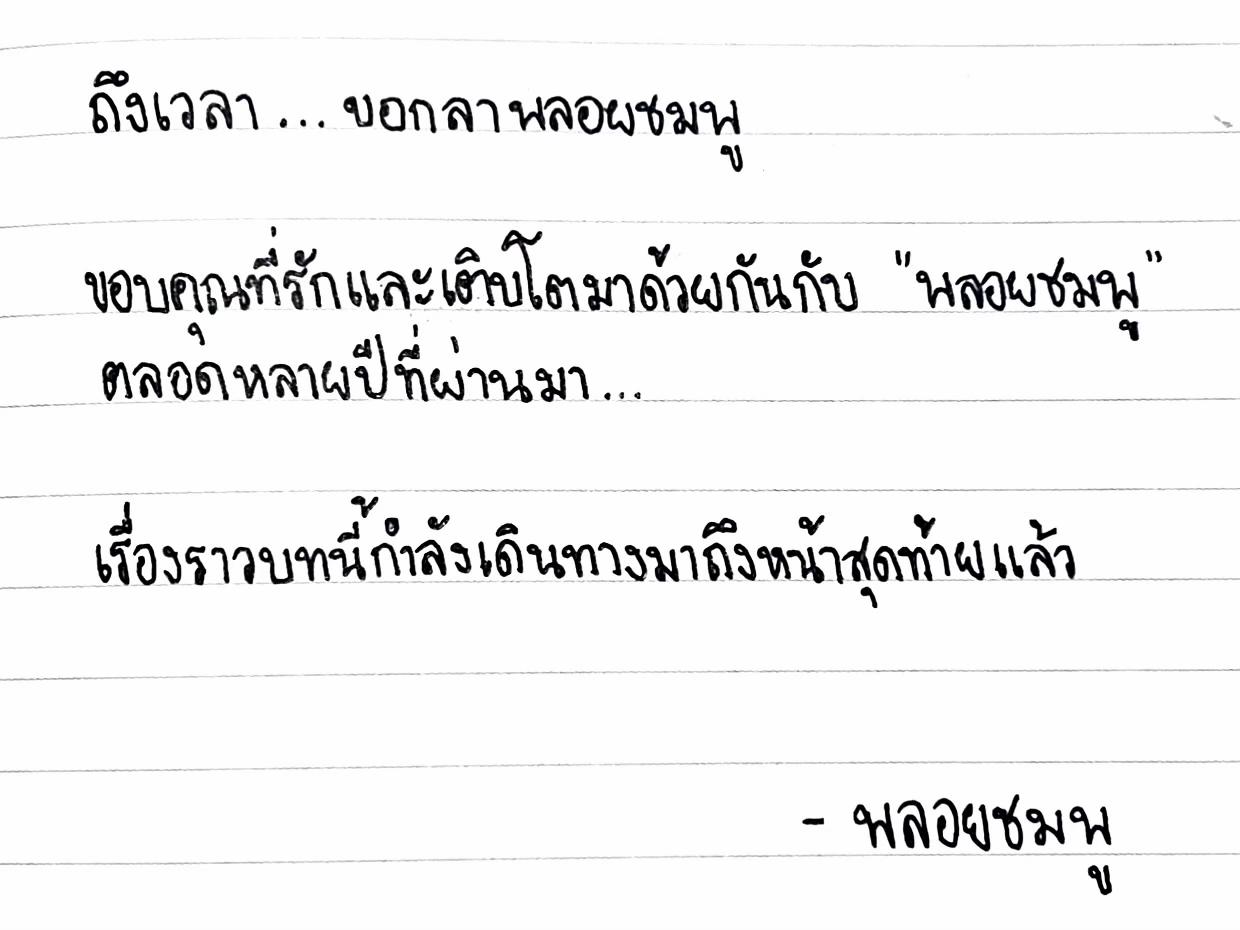 ถึงเวลา...บอกลาพลอยชมพู
ขอบคุณที่รักและเติบโตมาด้วยกันกับ "พลอยชมพู"
ตลอดหลายปีที่ผ่านมา...
เรื่องราวบทนี้กำลังเดินทางมาถึงหน้าสุดท้ายแล้ว
- พลอยชมพู